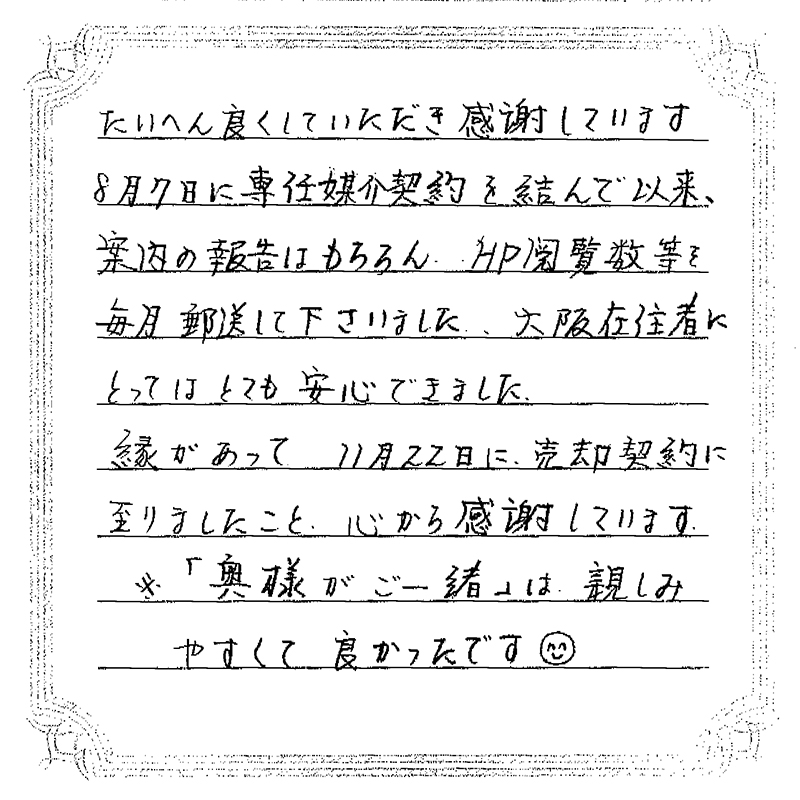 たいへん良くしていただき感謝しています
8月7日に専任媒介契約を結んで以来、
案内の報告はもちろん、HP閲覧数等を
毎月郵送して下さいました、大阪在住者に
とってはとても安心できました。
縁があって 11月22日に、売却契約に
至りましたこと、心から感謝しています。
※「奥様がご一緒」は、親しみ
やすくて良かったです